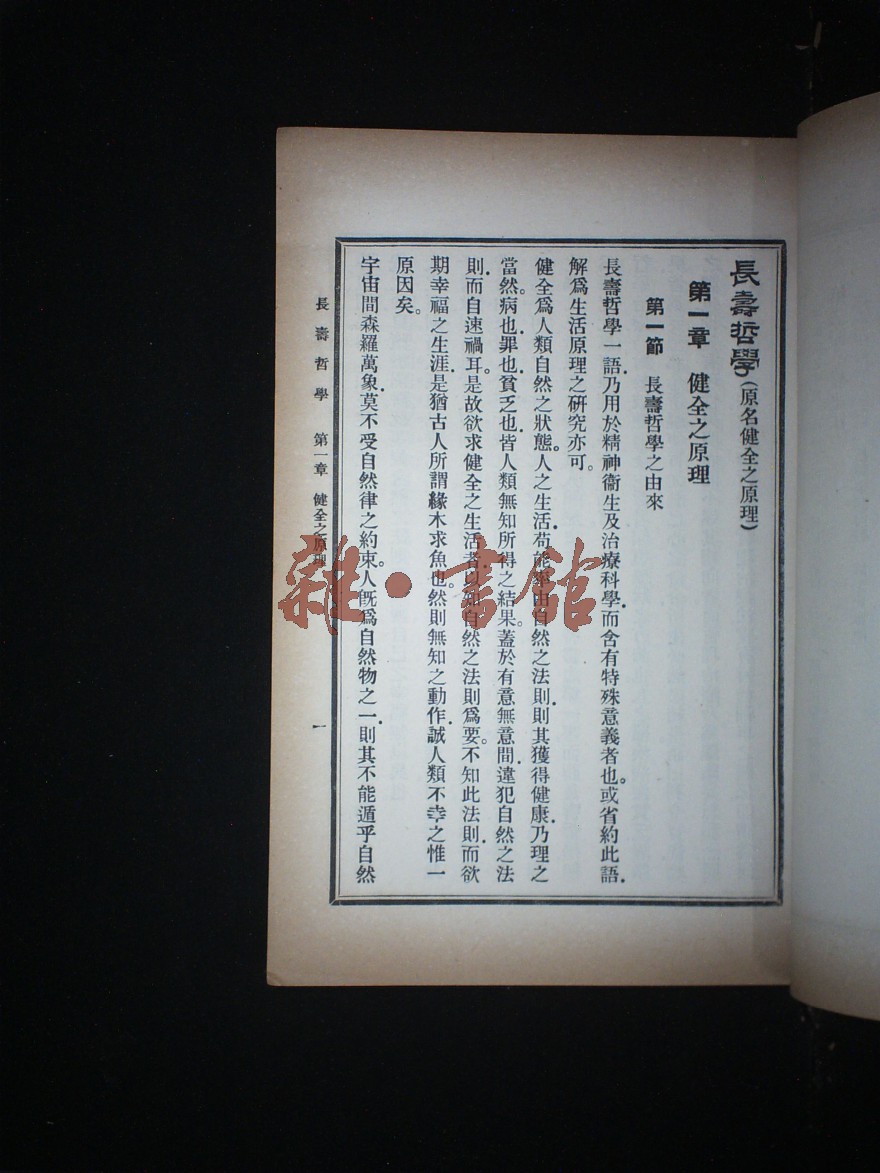 長壽哲學(原名健全之原理)
第一章 健全之原理
第一節 長壽哲學之由來
長壽哲學一語.乃用於精神衞生及治療科學.而含有特殊意義者也。或省約此語.
解爲生活原理之硏究亦可。
健全爲人類自然之狀態。人之生活.苟能率由自然之法則.則其獲得健康.乃理之
當然。病也.罪也.貧乏也.皆人類無知所得之結果。蓋於有意無意間.違犯自然之法
則.而自速禍耳。是故欲求健全之生活者.以知自然之法則爲要。不知此法則.而欲
期幸福之生涯.是猶古人所謂緣木求魚也。然則無知之動作.誠人類不幸之惟一
原因矣。
宇宙間森羅萬象.莫不受自然律之約束。人旣爲自然物之一.則其不能遁乎自然
長壽哲學 第一章 健全之原理 一
雜·書館